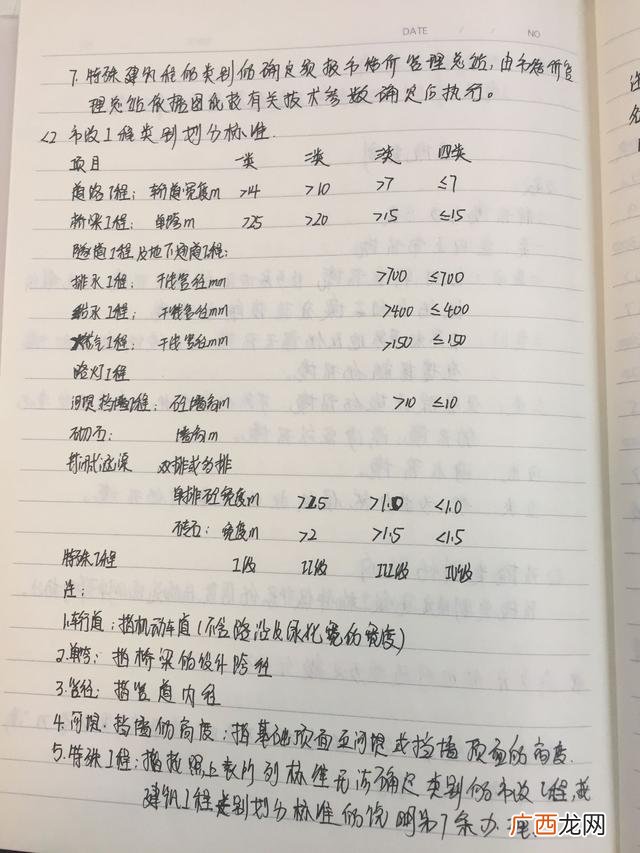 DATE / / NO
7. 特殊建筑工程的类别的确定须报市造价管理总站，由市造价管
理总站依据图纸或有关技术参数确定后执行。
<2 市政工程类别划分标准.
项目 一类 二类 三类 四类
道路工程：车行道宽度m >14 >10 >7 ≤7
桥梁工程：单跨m >25 >20 >15 ≤15
隧道工程及地下通道工程：
排水工程：干线管径mm >700 ≤700
给水工程：干线管径mm >400 ≤400
燃气工程：干线管径mm >150 ≤150
路灯工程
河堤挡墙工程：砼墙高m >10 ≤10
石砌石： 墙高m
封闭式边渠 双排或多排
单排砼宽度m >2.5 >1.0 <1.0
砖石：宽度m >2 >1.5 <1.5
特殊工程 I级 II级 III级 IV级
注：
1.车行道：指机动车道(不含路沿及绿化宽的宽度)
2.单跨：指桥梁的设计跨径
3.管径：指管道内径
4.河堤、挡墙的高度：指基础顶面至河堤或挡墙顶面的高度.
5.特殊工程：指按照上表所列标准无法确定类别的市政工程,按
建筑工程类别划分标准的说明第7条办理.
广西龙网